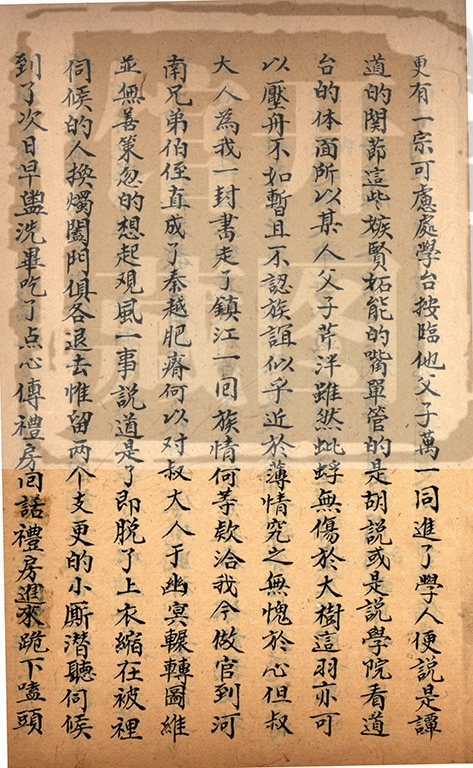 更有一宗可慮處學台按臨他父子萬一同進了學人便說是譚
道的関節這些嫉賢妬能的嘴單管的是胡說或是說學院看道
台的体面所以某人父子芹泮雖然蚍蜉無傷於大樹這羽亦可
以壓舟不如暫且不認族誼似乎近於薄情究之無愧於心但叔
大人為我一封書走了鎮江一回族情何等欵洽我今做官到河
南兄弟伯侄直成了秦越肥瘠何以对叔大人于幽冥輾轉圖維
並無善策忽的想起观風一事説道是了即脱了上衣縮在被裡
伺候的人換燭闔門俱各退去惟留两个支更的小厮潜聽伺候
到了次日早盥洗畢吃了点心傳禮房回話禮房進來跪下嗑頭